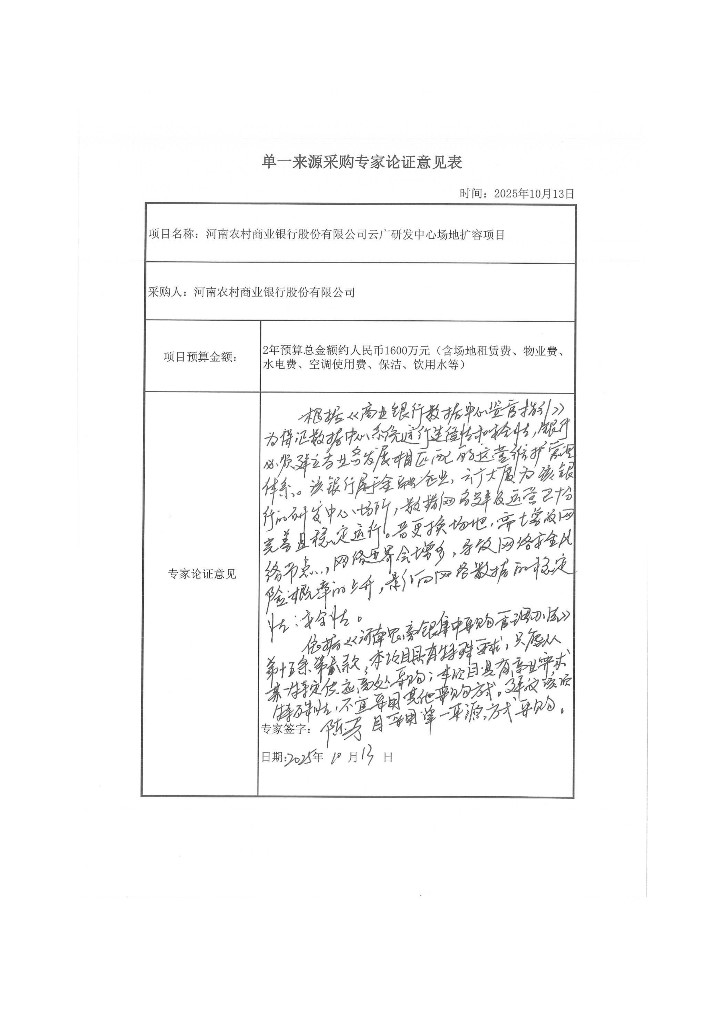 单一来源采购专家论证意见表
时间：2025年10月13日
项目名称：河南农村商业银行股份有限公司云广研发中心场地扩容项目
采购人：河南农村商业银行股份有限公司
项目预算金额：
2年预算总金额约人民币1600万元（含场地租赁费、物业费、
水电费、空调使用费、保洁、饮用水等）
专家论证意见
根据《商业银行数据中心监管指引》
为保证数据中心系统运行连续性和安全性，银行
必须建立与业务发展相匹配的运营维护管理
体系。该银行属于金融企业，云广大厦为该银
行的研发中心场所，数据网络建设及运营已十分
完善且稳定运行。若更换场地，需增设网
络节点，网络边界会增多，导致网络安全风
险概率的上升，影响网络数据的稳定
性、安全性。
依据《河南农商银行集中采购管理办法》
第十五条第贰款，本项目具有特殊要求，只能从
某特定供应商处采购；本项目具有专业要求
特殊性，不宜采用其他采购方式。建议该项
专家签字： 目采用单一来源方式采购。
日期：2025年10月13日